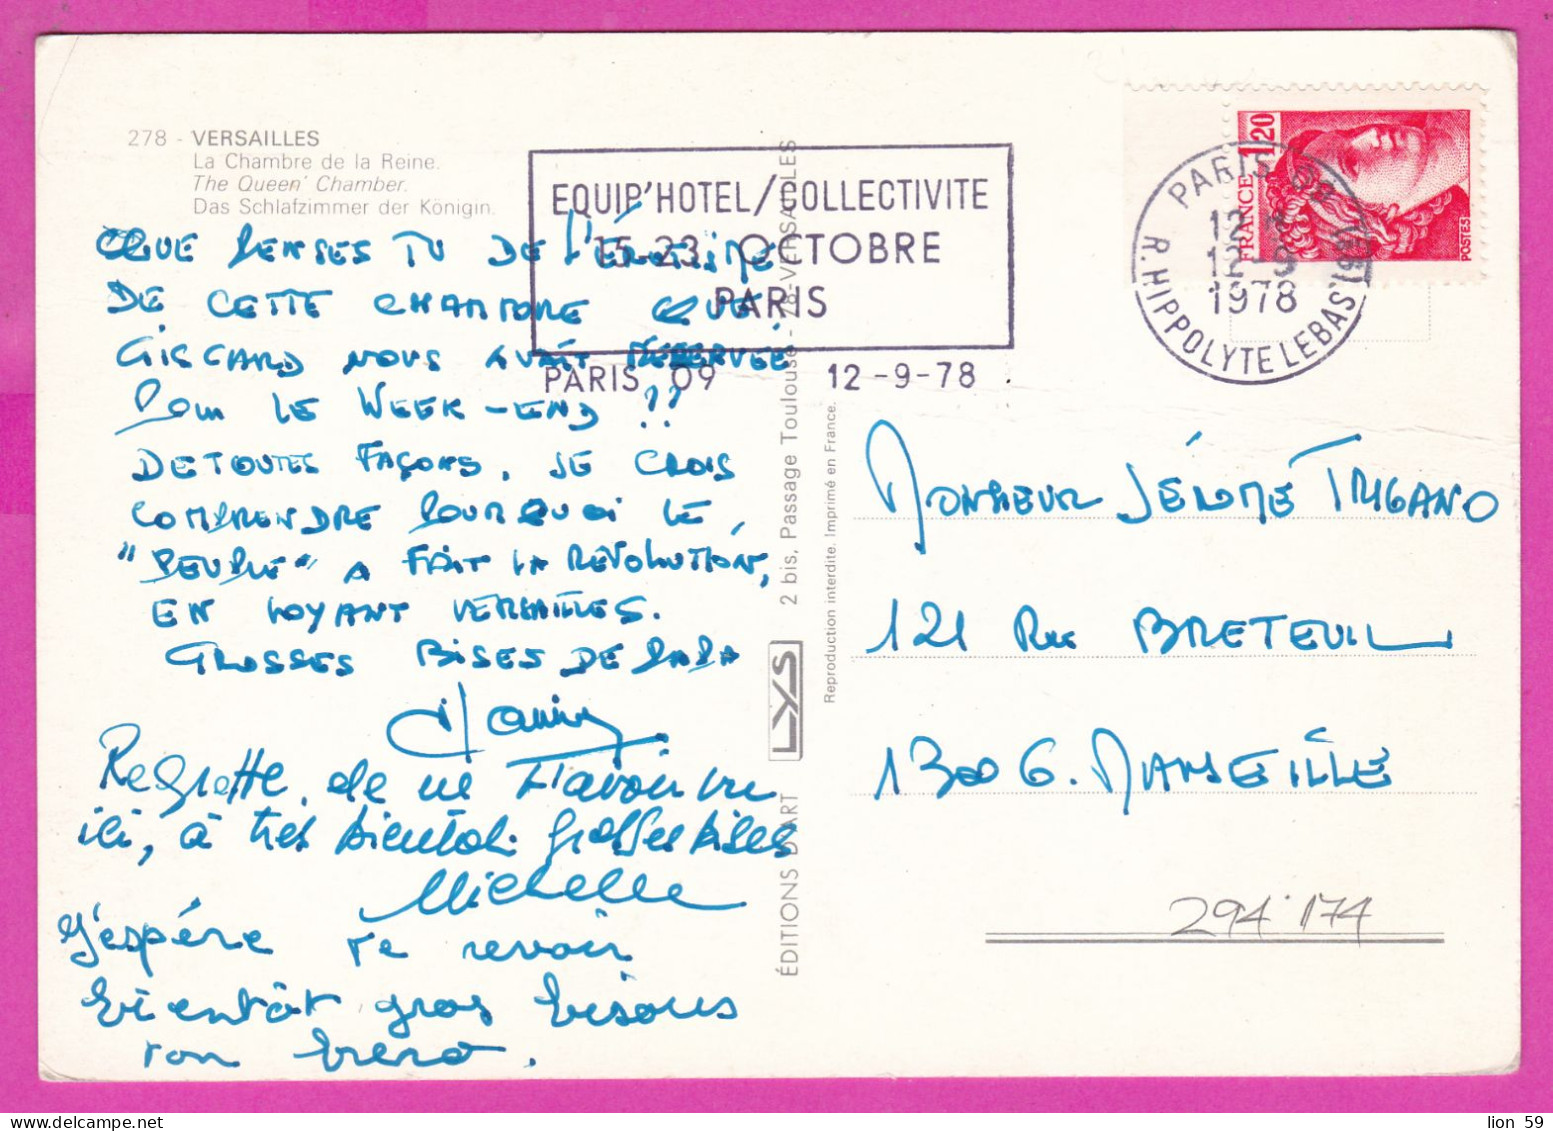 278 - VERSAILLES
La Chambre de la Reine.
The Queen' Chamber.
Das Schlafzimmer der Königin.
EQUIP'HOTEL/COLLECTIVITE
15-23 OCTOBRE
PARIS
PARIS 09 12-9-78
FRANCE 1,20
POSTES
PARIS 09
12 H
12-9
1978
R. HIPPOLYTE LEBAS (9E)
QUE PENSES TU DE L'
DE CETTE CHAMBRE QUE
GISCARD NOUS AVAIT RESERVÉE
POUR LE WEEK-END ??
DE TOUTES FAÇONS, JE CROIS
COMPRENDRE POURQUOI LE
"PEUPLE" A FAIT LA REVOLUTION,
EN VOYANT VERSAILLES.
GROSSES BISES DE PAPA
Regrette de ne t'avoir vu
ici, à très bientôt. grosses bises
Michelle
J'espère te revoir
bientôt gros bisous
ton
MONSIEUR JÉROME TRIGANO
121 Rue BRETEUIL
13006. MARSEILLE
294'174
ÉDITIONS D'ART LYS 2 bis, Passage Toulouse - 78-VERSAILLES
Reproduction interdite. Imprimé en France.
lion 59